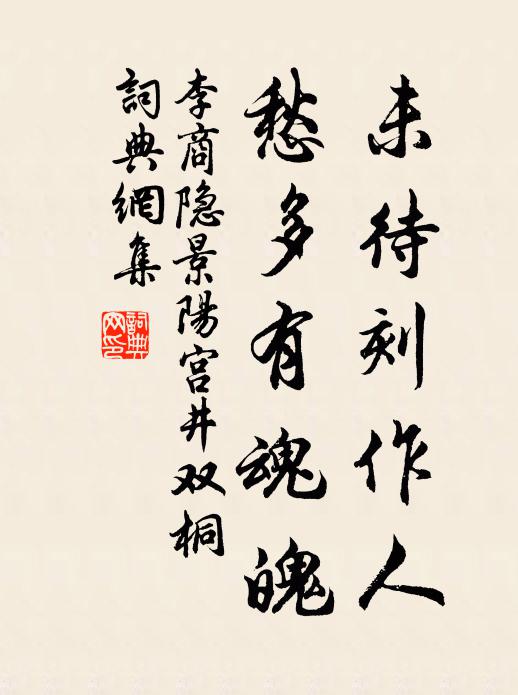 未待刻作人
愁多有魂魄
李商隐景陽宮井双桐
詞典網集
詞典
网印